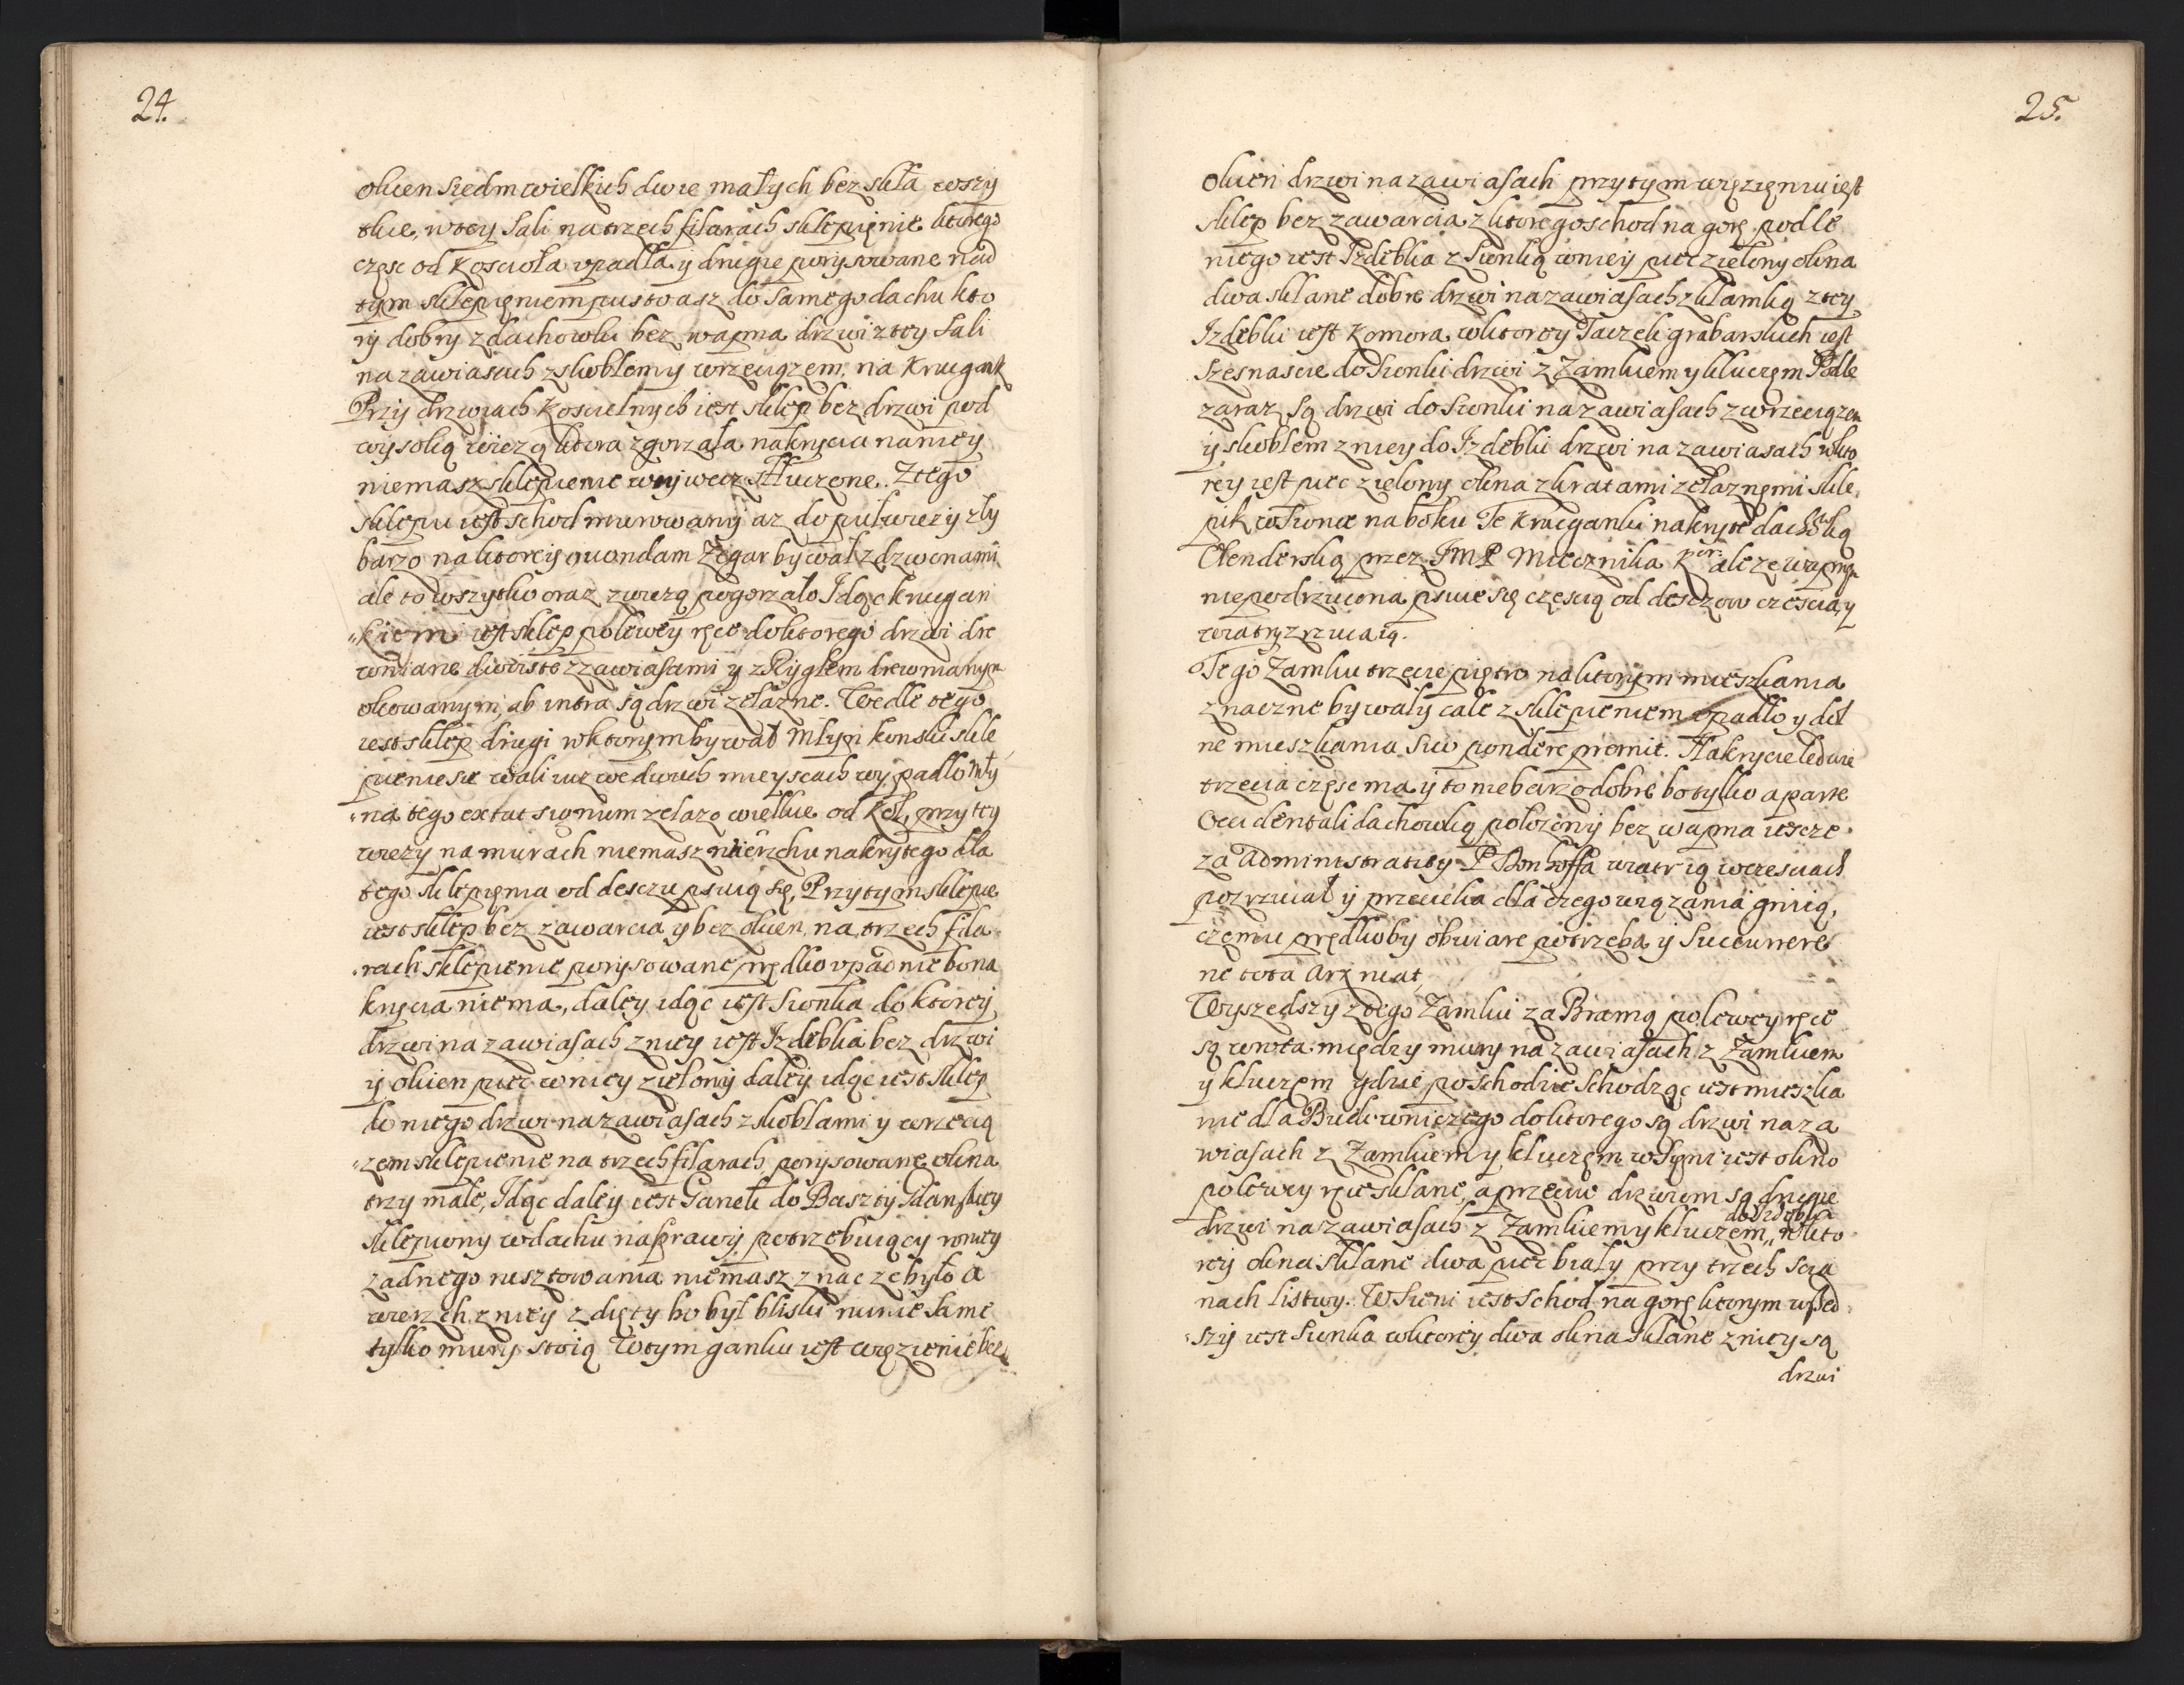 24.
okien siedm wielkich dwie małych bez skła wszy
tkie, w tey Sali na trzech filarach sklepięnie ktorego
częsc od Kosciola vpadła y drugie porysowane nad
tym sklepięniem pusto asz do samego dachu kto
ry dobry z dachowki bez wapna drzwi z tey Sali
na zawiasach z skoblem y wrzeciązem, na Krugank
Przy drzwiach Koscielnych iest sklep bez drzwi pod
wysoką wiezą ktora zgorzała nakrycia na niey
niemasz sklepienie wniwecz stłuczone. Z tego
sklepu iest schod murowany az do puł wiezy zły
barzo na ktorey quondam Zegar bywał z dzwonami
ale to wszytko oraz z wiezą pogorzało Idąc krugan
„kiem iest sklep po lewey ręce do ktorego drzwi dre
wniane dwoiste z zawiasami y z Ryglem drewnianym
okowanym, ab intra są drzwi zelazne. Wedle tego
iest sklep drugi w ktorym bywał Młyn konski skle
pienie sie wali iuz we dwuch mieyscach wypadło Mły
„na tego extat signum zelazo wielkie od Koł, przy tey
wiezy na murach niemasz wierzchu nakrytego dla
tego sklepięnia od desczu psuią się, Przy tym sklepie
iest sklep bez zawarcia y bez okien, na trzech fila
„rach sklepienie porysowane prędko vpadnie bo na
krycia niema, daley idąc iest Sionka do ktorey
drzwi na zawiasach z niey iest Izdebka bez drzwi
y okien piec w niey zielony daley idąc iest sklep
do niego drzwi na zawiasach z skoblami y wrzecią
„zem sklepienie na trzech filarach porysowane okna
trzy małe, Idąc daley iest Ganek do Baszty Gdanskiey
sklepiony w dachu naprawy potrzebuiący w niey
zadnego rusztowania niemasz znac ze było a
wierzch z niey zdięty bo był bliski ruinie same
tylko mury stoią W tym ganku iest więzienie bez
25.
okien drzwi na zawiasach przy tym więzięniu iest
sklep bez zawarcia z ktorego schod na gorę podle
niego iest Izdebka z Sionką w niey piec zielony okna
dwa sklane dobre drzwi na zawiasach z klamką z tey
Izdebki iest Komora w ktorey Taczek grabarskich iest
szesnascie do Sionki drzwi z Zamkiem y kluczem Podle
zaraz są drzwi do Sionki na zawiasach z wrzeciązem
y skoblem z niey do Izdebki drzwi na zawiasach w kto
rey iest piec zielony okna z kratami zelaznemi skle
pik w Sionce na boku Te Kruganki nakryte dachowką
Olenderską przez JMP Miecznika Kor: ale ze wapnem
niepodrzucona psuie się częscią od desczow częscią y
wiatry zrzucaią.
Tego Zamku trzecie piętro na ktorym mieszkania
znaczne bywały cale z sklepieniem vpadło y dol
ne mieszkania suo pondere premit. Nakrycie ledwie
trzecia częsc ma y to niebarzo dobre bo tylko a parte
Occidentali dachowką położony bez wapna iescze
za Administratiey P Donhoffa wiatr ią w czesciach
pozrzucał y przecieka dla czego wiązania gniią,
czemu prędkoby obuiare potrzeba y Succurrere
ne tota Arx ruat,
Wyszedszy z tego Zamku za Bramą po lewey ręce
są wrota między mury na zawiasach z Zamkiem
y kluczem gdzie po schodzie schodząc iest mieszka
nie dla Budowniczego do ktorego są drzwi na za
wiasach z Zamkiem y kluczem w Syni iest okno
po lewey ręce sklane, a przeciw drzwiom są drugie
drzwi na zawiasach z Zamkiem y kluczem „ do Izdebki w kto
rey okna sklane dwa piec biały przy trzech scia
nach listwy. W Sieni iest Schod na gorę ktorym wszed
„szy iest Sionka w ktorey dwa okna sklane z niey są
drzwi